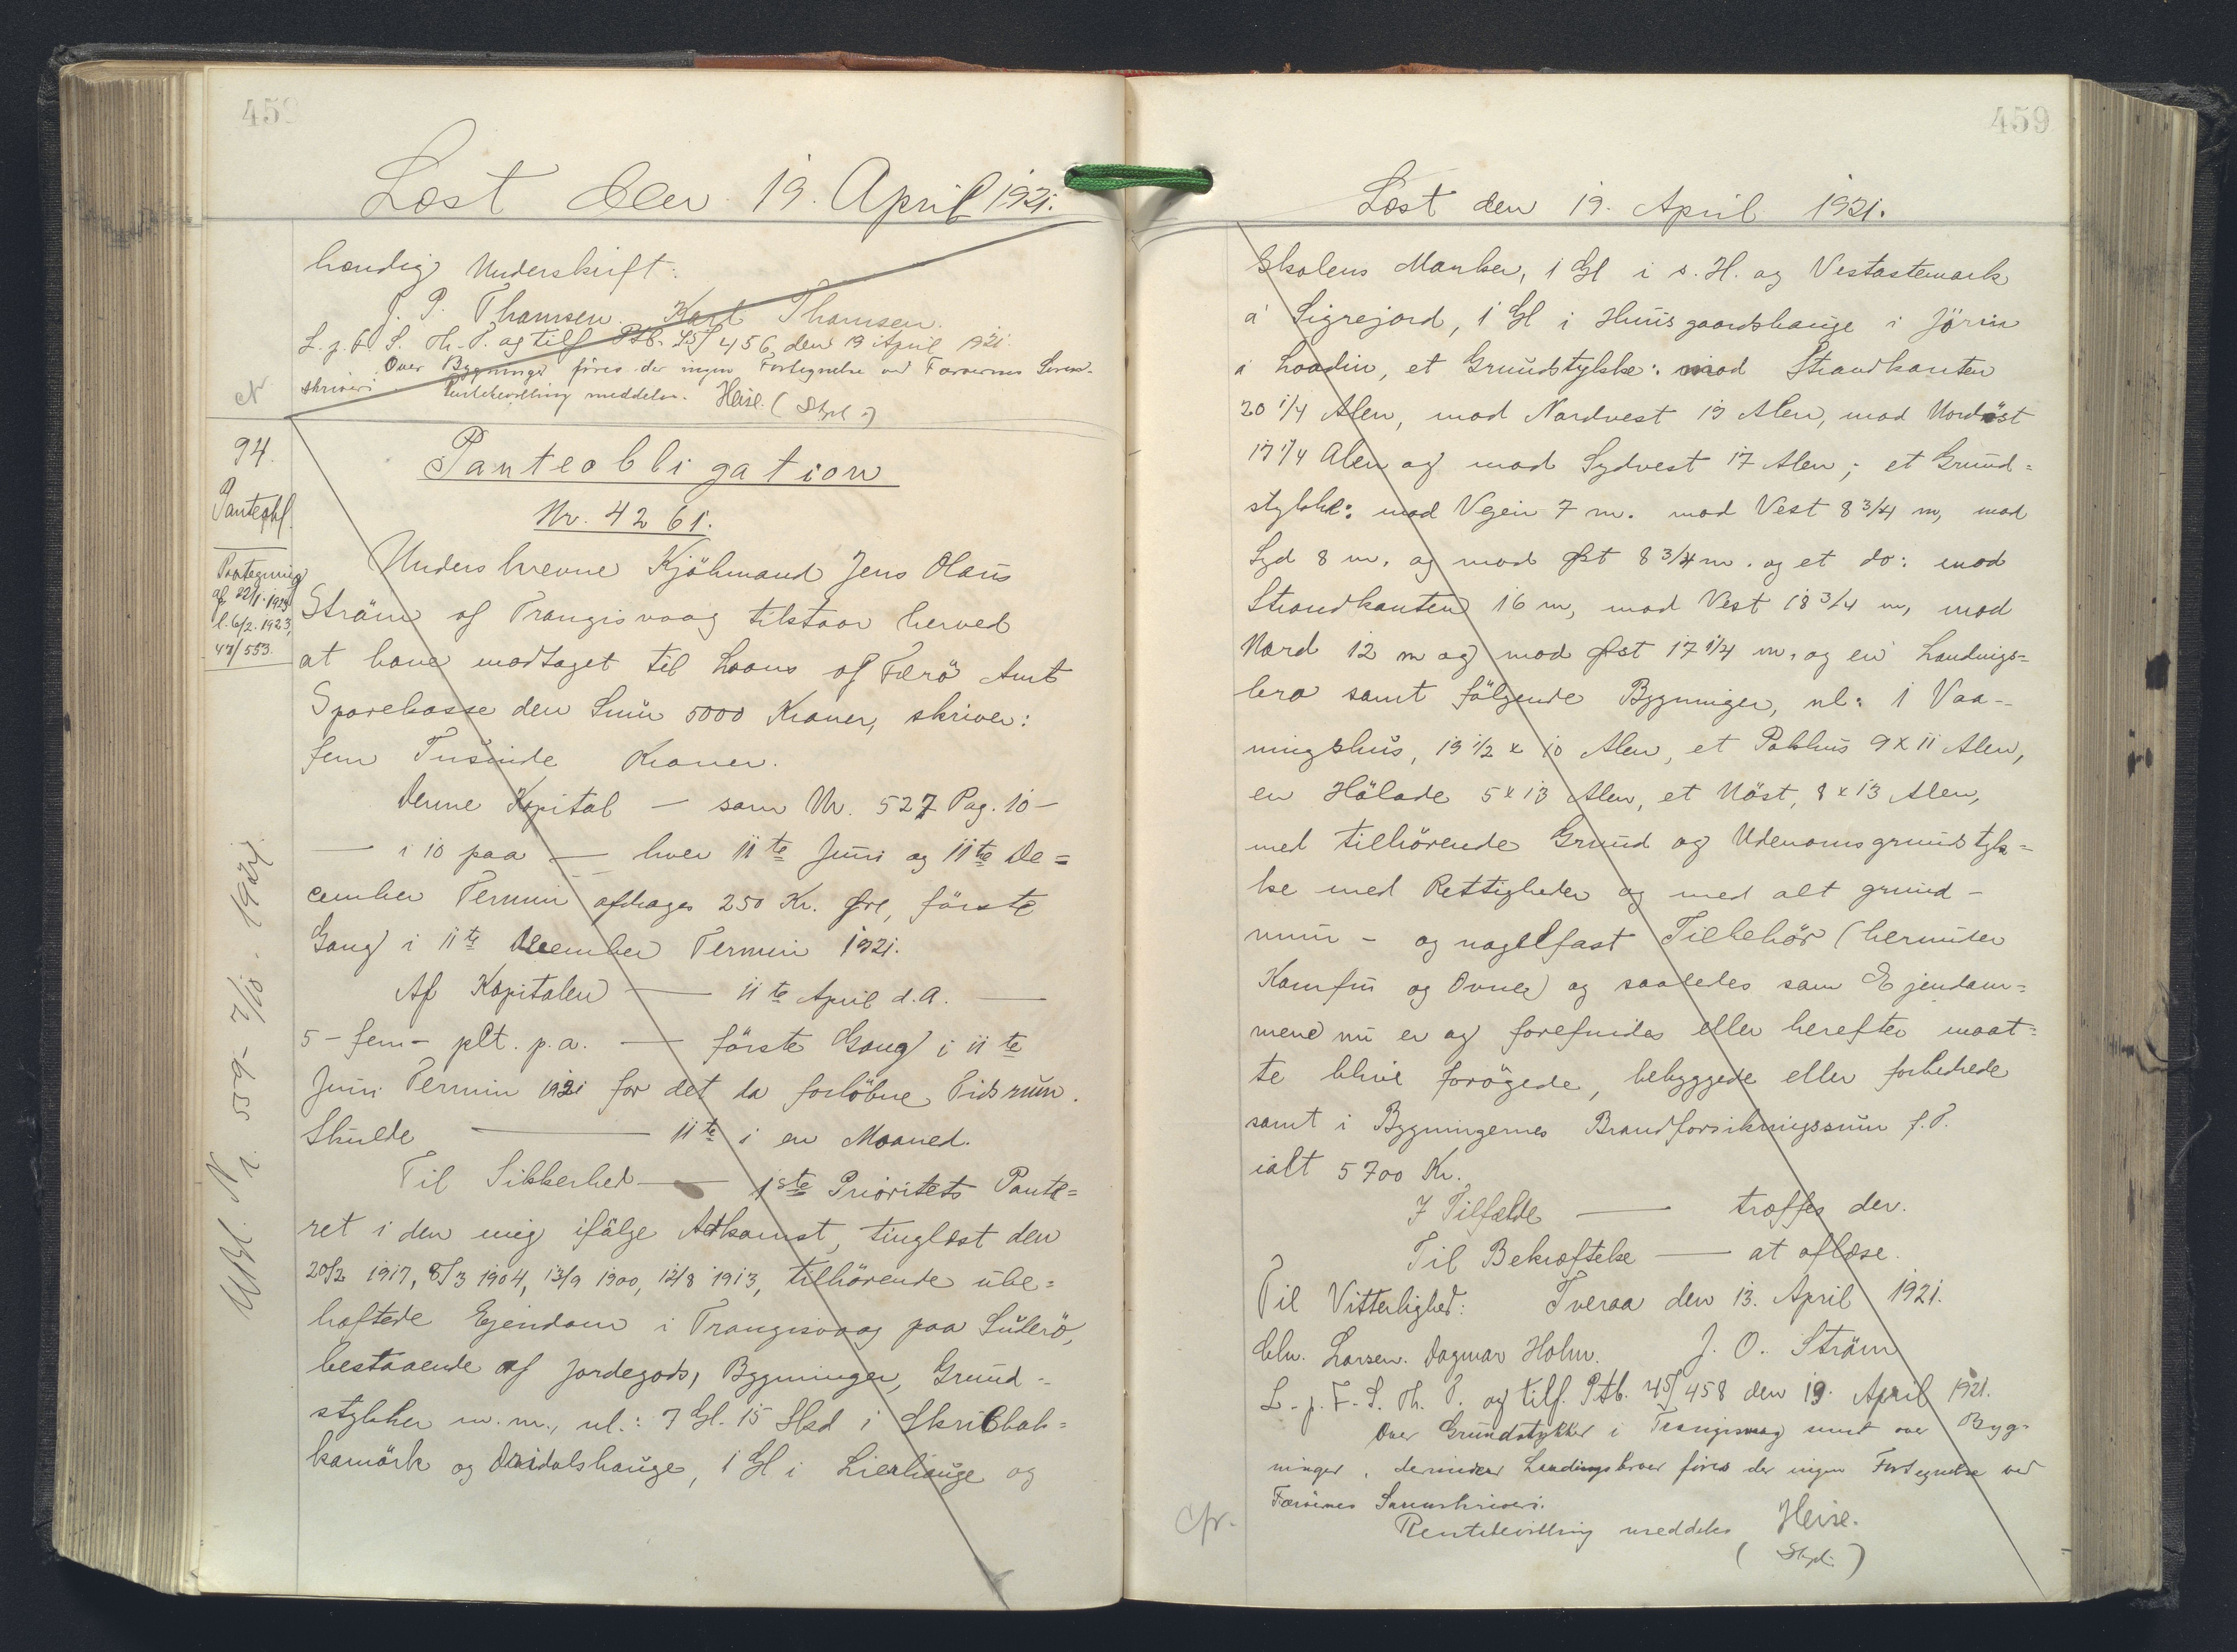 458
Læst den 19. April 1921.
hændig Underskrift:
J. P. Thomsen. Karl Thomsen.
L. j. F. S. Th. P. og tilf. Ptb. 45/456, den 19 April 1921.
Over Bygninger føres der ingen Fortegnelse ved Færøernes Soren-
skriveri. Rentebevilling meddeles. Heise. (Stpl.)
94.
Panteobl.
Paategning
af 22/1. 1923
l. 6/2. 1923,
47/553.
Panteobligation
Nr. 4261.
Underskrevne Kjöbmand Jens Olaus
Ström af Trangisvaag tilstaar herved
at have modtaget til Laans af Færö Amt
Sparekasse den Sum 5000 Kroner, skriver:
fem Tusinde Kroner.
Denne Kapital — som Nr. 527 Pag. 10 —
— i 10 paa — hver 11te Juni og 11te De=
cember Termin afdrages 250 Kr. Øre, förste
Gang i 11te December Termin 1921.
Af Kapitalen — 11te April d. A. —
5 - fem - pCt. p. a. — förste Gang i 11te
Juni Termin 1921 for det da forlöbne Tidsrum.
Skulde — 11te i en Maaned.
Til Sikkerhed — 1ste Prioritets Pante=
ret i den mig ifölge Adkomst, tinglæst den
20/2 1917, 8/3 1904, 13/9 1900, 12/8 1913, tilhörende ube=
hæftede Ejendom i Trangisvaag paa Suderö,
bestaaende af Jordegods, Bygninger, Grund-
stykker m. m., nl.: 7 Gl. 15 Skd i
og 1 Gl i og
Udsl. N
1. 559 - 7/10 - 1924.
459
Læst den 19. April 1921.
Skolens Marker, 1 Gl i s. H. og Vestastemark
á Sigrejord, 1 Gl i Husgaardshauge i Jörin
á Loadin, et Grundstykke: mod Strandkanten
20 1/4 Alen, mod Nordvest 19 Alen, mod Nordöst
17 1/4 Alen og mod Sydvest 17 Alen; et Grund=
stykke: mod Vejen 7 m. mod Vest 8 3/4 m, mod
Syd 8 m. og mod Øst 8 3/4 m. og et do: mod
Strandkanten 16 m, mod Vest 18 3/4 m, mod
Nord 12 m og mod Øst 17 1/4 m, og en Landings=
bro samt fölgende Bygninger, nl: 1 Vaa-
ningshus, 19 1/2 x 10 Alen, et Pakhus 9 x 11 Alen,
en Hölade 5 x 13 Alen, et Nöst, 8 x 13 Alen,
med tilhörende Grund og Udenomsgrundstyk=
ke med Rettigheder og med alt grund-
mur - og nagelfast Tilbehör (herunder
Komfur og Ovne) og saaledes som Ejendom=
mene nu er og forefindes eller herefter maat=
te blive forögede, bebyggede eller forbedrede
samt i Bygningernes Brandforsikringssum f. T.
ialt 5700 Kr.
I Tilfælde — træffes der.
Til Bekræftelse — at aflæse.
Til Vitterlighed: Tveraa den 13. April 1921.
Chr. Larsen. Dagmar Holm. J. O. Ström
L. j. F. S. Th. P. og tilf. Ptb. 45/458 den 19. April 1921.
Over Grundstykker i Trangisvaag samt over Byg-
ninger, derunder Landingsbroer føres der ingen Fortegnelse ved
Færøernes Sorenskriveri.
Rentebevilling meddeles Heise.
(Stpl.)
Cfr.